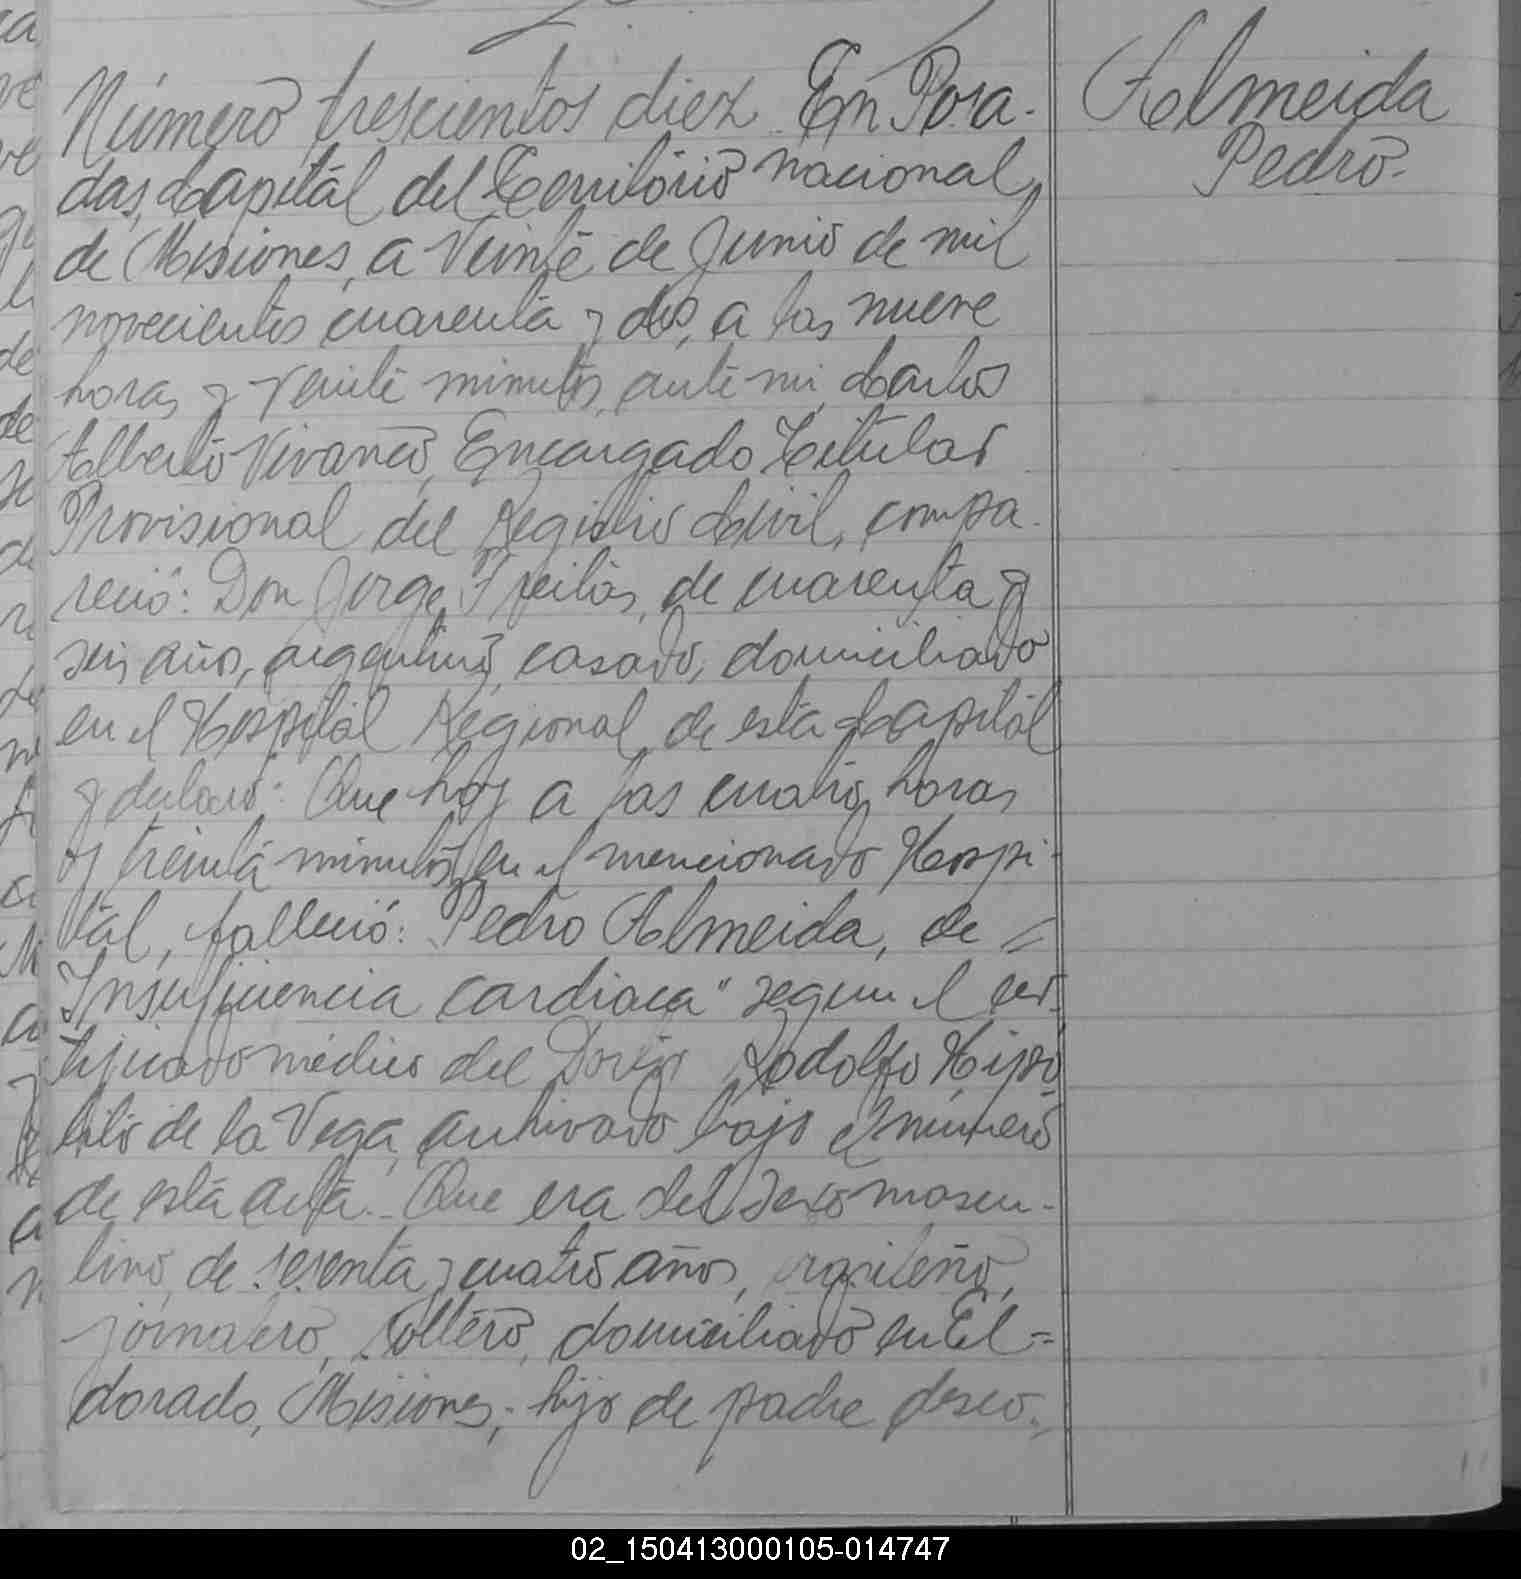 Número trescientos diez. En Posa-
das, Capital del Territorio nacional
de Misiones, a Veinte de Junio de mil
novecientos cuarenta y dos, a las nueve
horas y veinte minutos, ante mi, Carlos
Alberto Vivanco, Encargado Titular
Provisional del Registro Civil, compa-
reció: Don Jorge Freitas, de cuarenta y
seis años, argentino, casado, domiciliado
en el Hospital Regional de esta Capital
y declaró: Que hoy a las cuatro horas
y treinta minutos, en el mencionado Hospi-
tal, falleció: Pedro Almeida, de "
Insuficiencia cardiaca" segun el cer-
tificado médico del Doctor Rodolfo Hipó
lito de la Vega, archivado bajo el número
de esta acta.- Que era del sexo mascu-
lino, de sesenta y cuatro años, brasileño,
jornalero, soltero, domiciliado en El=
dorado, Misiones; hijo de padre desco-
Almeida
Pedro.
02_150413000105-014747